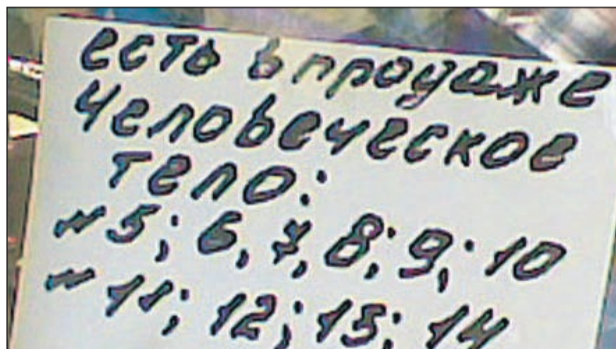 есть в продаже
человеческое
тело:
№5; 6, 7, 8; 9; 10
№11; 12; 13; 14